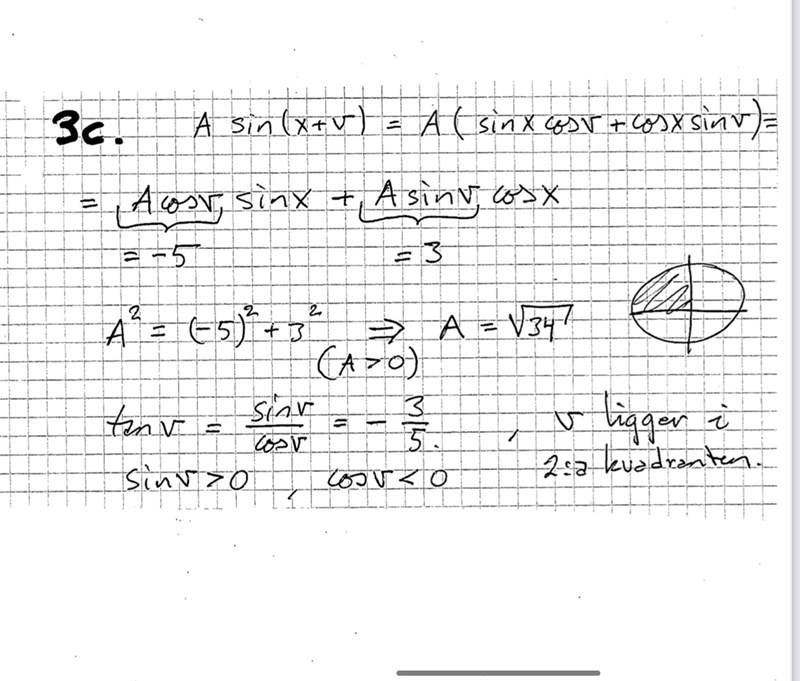 3c. A sin(x+v) = A( sinx cosv + cosx sinv) =
= A cosv sinx + A sinv cosx
= -5 = 3
A² = (-5)² + 3² ⇒ A = √34
(A > 0)
tan v = sinv/cosv = - 3/5. , v ligger i
2:a kvadranten.
sinv > 0 , cosv < 0